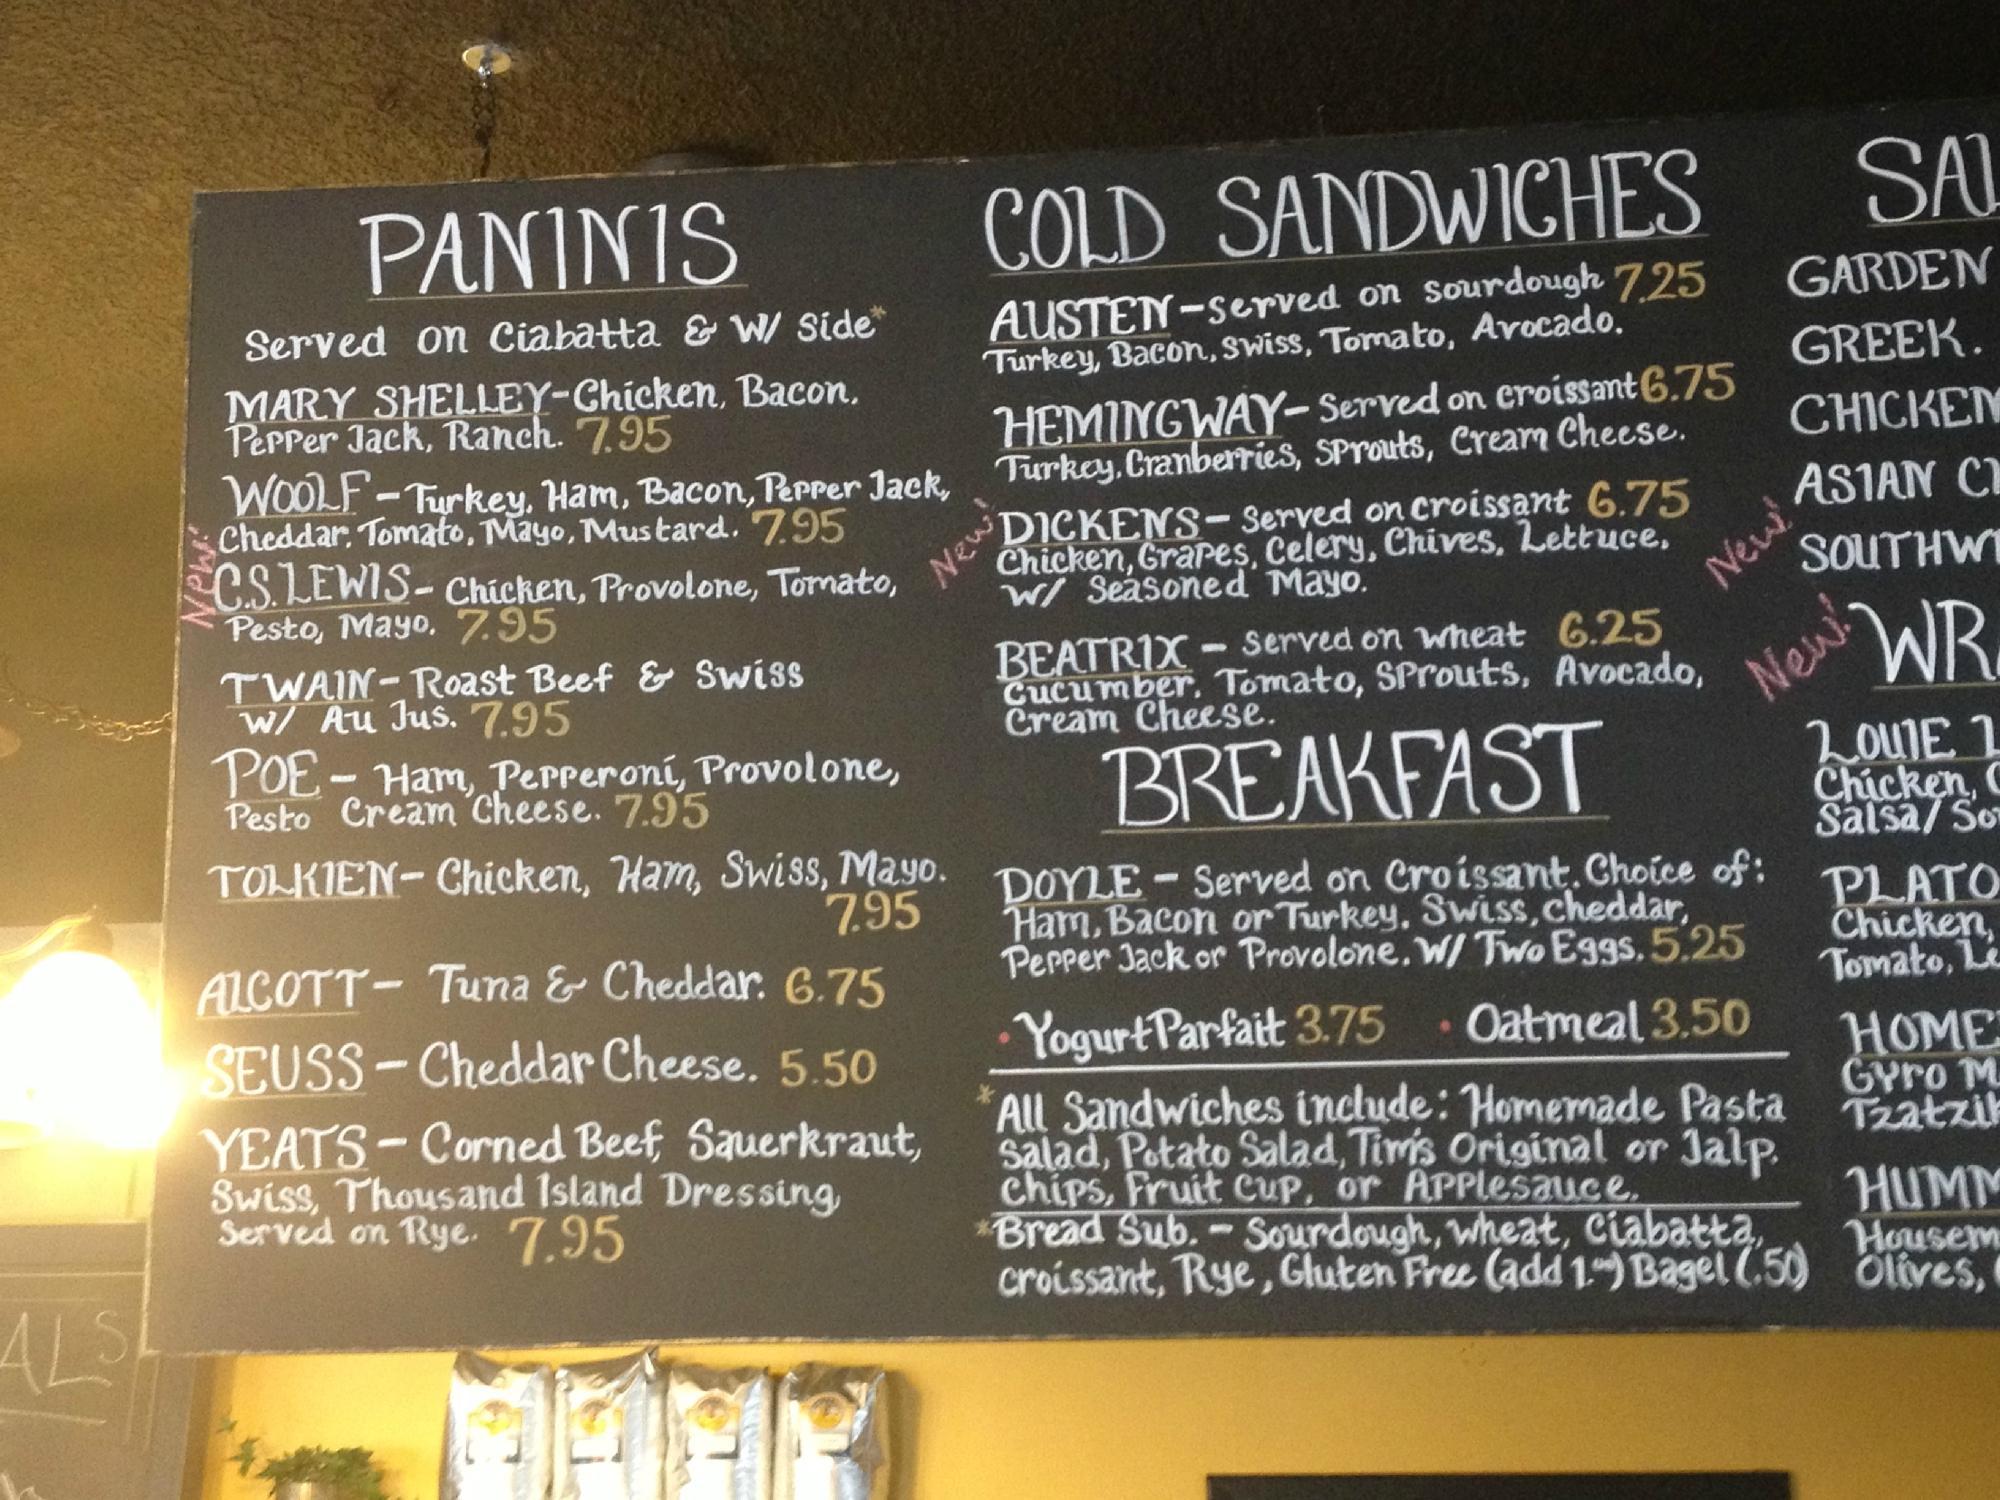 PANINIS
Served on Ciabatta & W/ Side*
MARY SHELLEY-Chicken, Bacon,
Pepper Jack, Ranch. 7.95
WOOLF-Turkey, Ham, Bacon, Pepper Jack,
Cheddar, Tomato, Mayo, Mustard. 7.95
New!
C.S. LEWIS- Chicken, Provolone, Tomato,
Pesto, Mayo. 7.95
TWAIN-Roast Beef & Swiss
W/ Au Jus. 7.95
POE - Ham, Pepperoni, Provolone,
Pesto Cream Cheese. 7.95
TOLKIEN- Chicken, Ham, Swiss, Mayo.
7.95
ALCOTT- Tuna & Cheddar. 6.75
SEUSS - Cheddar Cheese. 5.50
YEATS - Corned Beef, Sauerkraut,
Swiss, Thousand Island Dressing
Served on Rye. 7.95
COLD SANDWICHES
AUSTEN-served on sourdough 7.25
Turkey, Bacon, Swiss, Tomato, Avocado.
HEMINGWAY- Served on croissant 6.75
Turkey, Cranberries, Sprouts, Cream Cheese.
New!
DICKENS- Served on croissant 6.75
Chicken, Grapes, Celery, Chives, Lettuce,
W/ Seasoned Mayo.
BEATRIX - Served on wheat 6.25
Cucumber, Tomato, Sprouts, Avocado,
Cream Cheese.
BREAKFAST
DOYLE - Served on Croissant. Choice of:
Ham, Bacon or Turkey. Swiss, cheddar,
Pepper Jack or Provolone. W/ Two Eggs. 5.25
• Yogurt Parfait 3.75 • Oatmeal 3.50
*All Sandwiches include: Homemade Pasta
Salad, Potato Salad, Tim's Original or Jalp.
Chips, Fruit Cup, or Applesauce.
*Bread Sub. - Sourdough, wheat, Ciabatta,
croissant, Rye, Gluten Free (add 1.00) Bagel (.50)
GARDEN
GREEK.
CHICKEN
ASIAN
New!
New!
LOUIE
Chicken,
Salsa/
PLATO
Chicken,
Tomato,
Gyro
Olives,